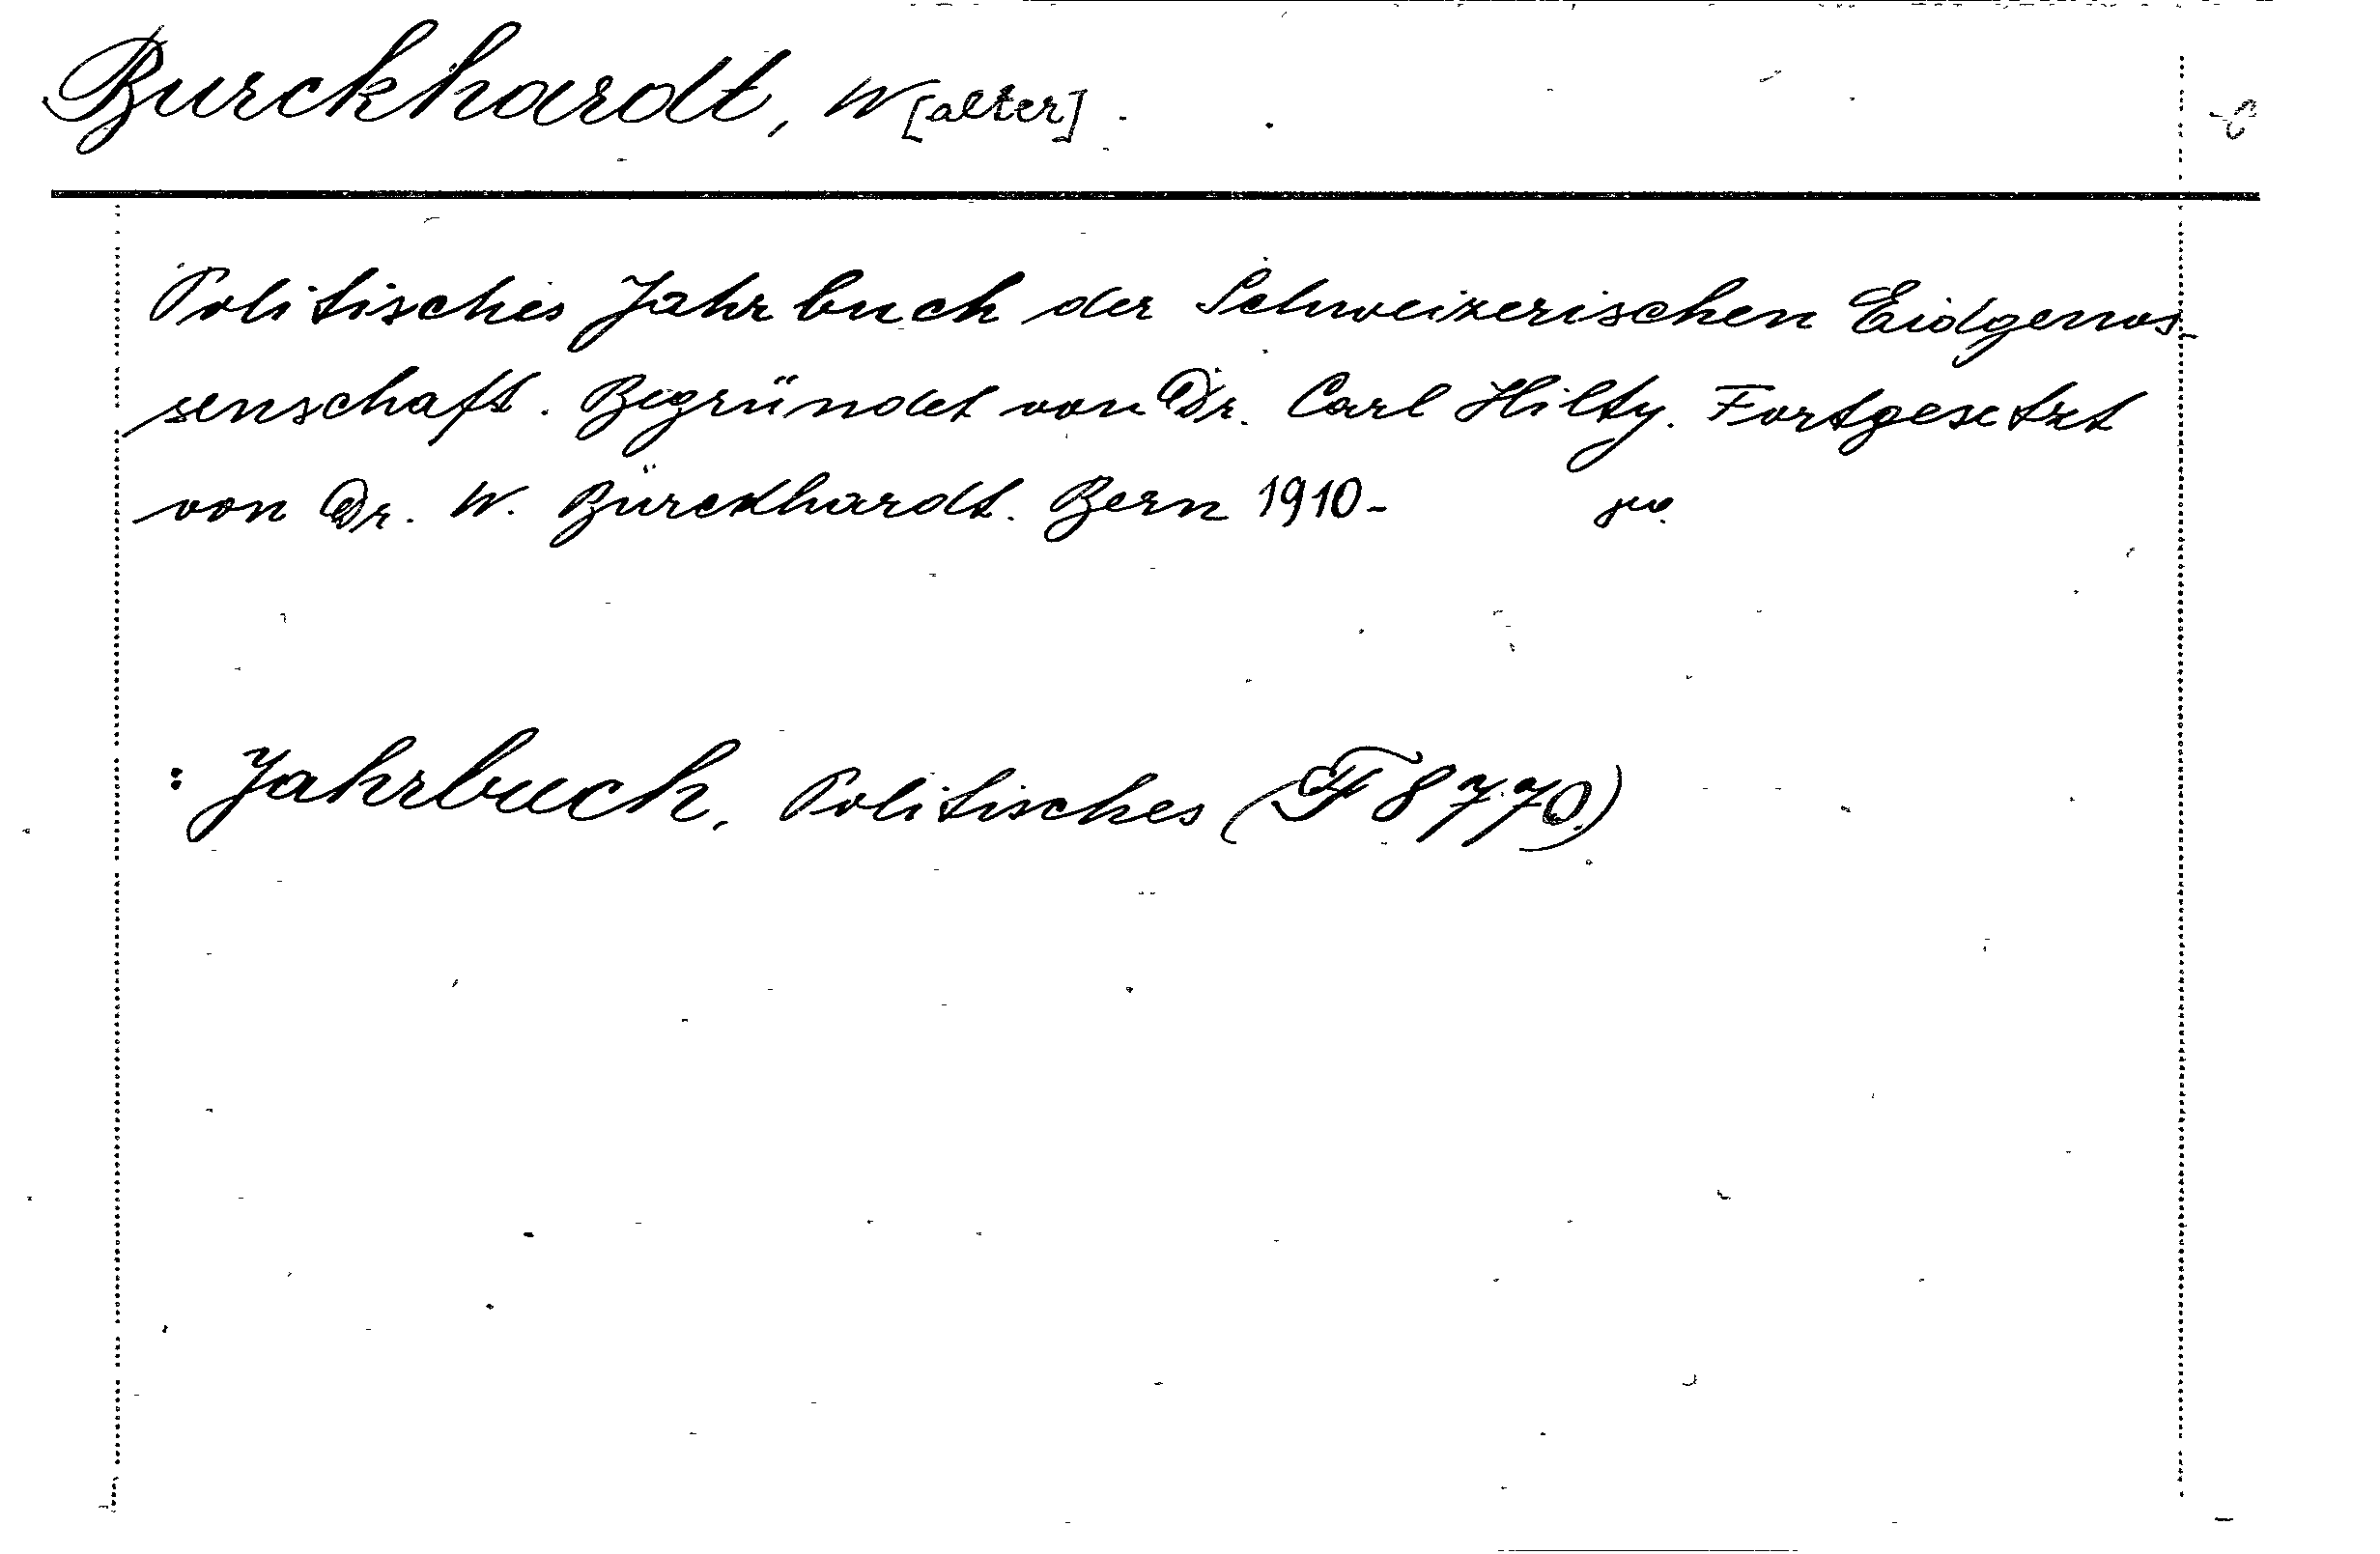 Burckhardt, W[alter].
Politisches Jahrbuch der Schweizerischen Eidgenos-
senschaft. Begründet von Dr. Carl Hilty. Fortgesetzt
von Dr. W. Burckhardt. Bern 1910-
: Jahrbuch, Politisches (F 8770)